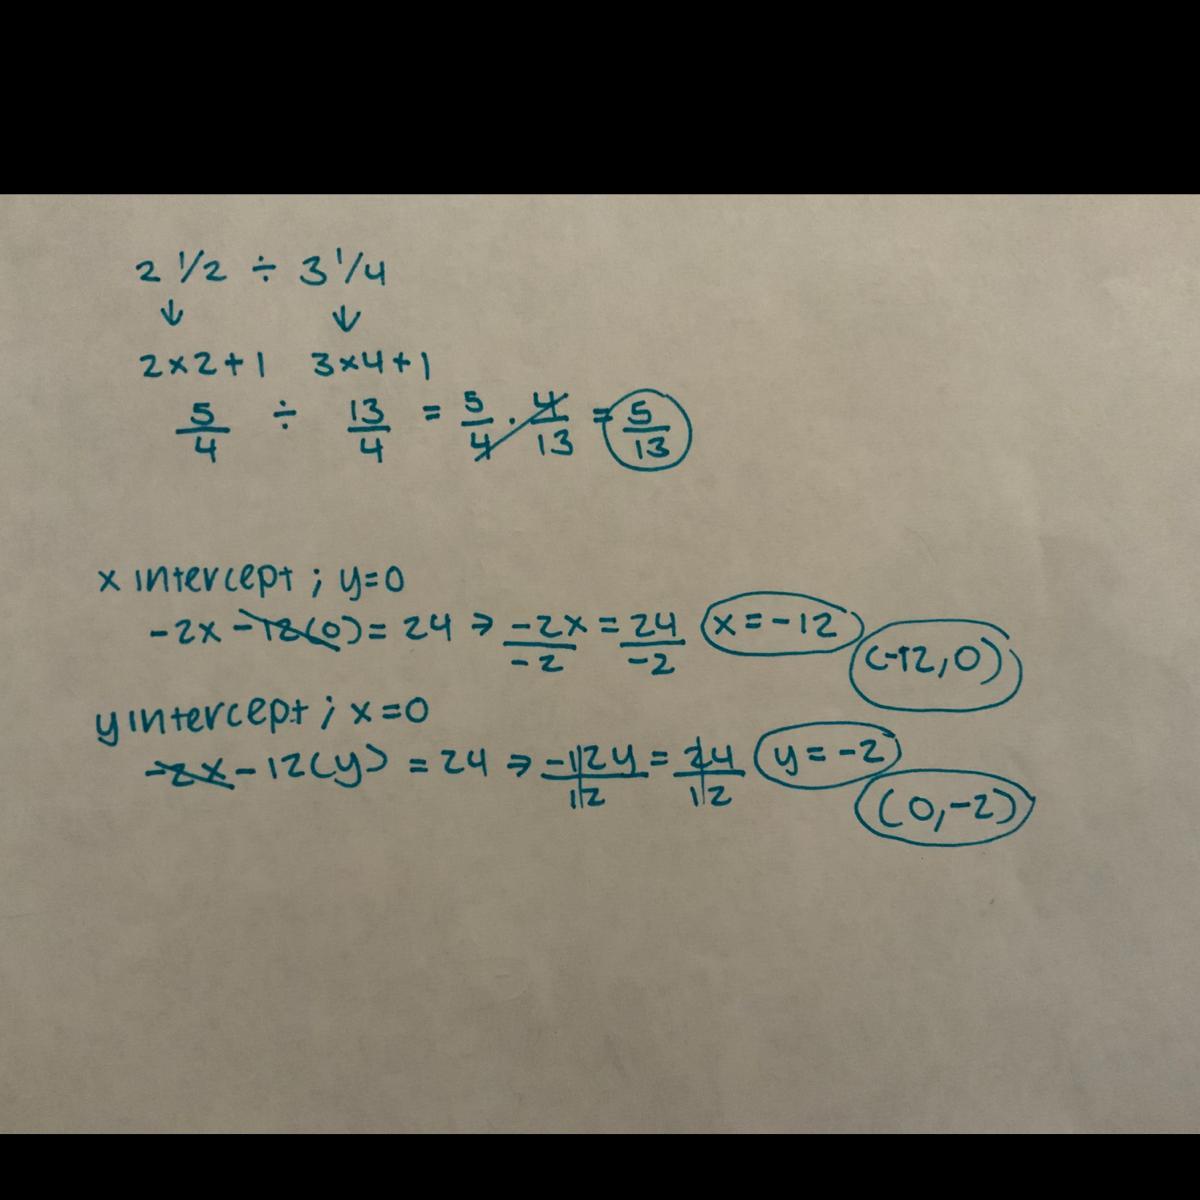 2 1/2 ÷ 3 1/4
↓ ↓
2×2+1 3×4+1
5/4 ÷ 13/4 = 5/4 · 4/13 = 5/13
x intercept ; y=0
-2x -12(0) = 24 → -2x/-2 = 24/-2 x = -12
(-12,0)
y intercept ; x=0
-2x -12(y) = 24 → -12y/12 = 24/12 y = -2
(0,-2)